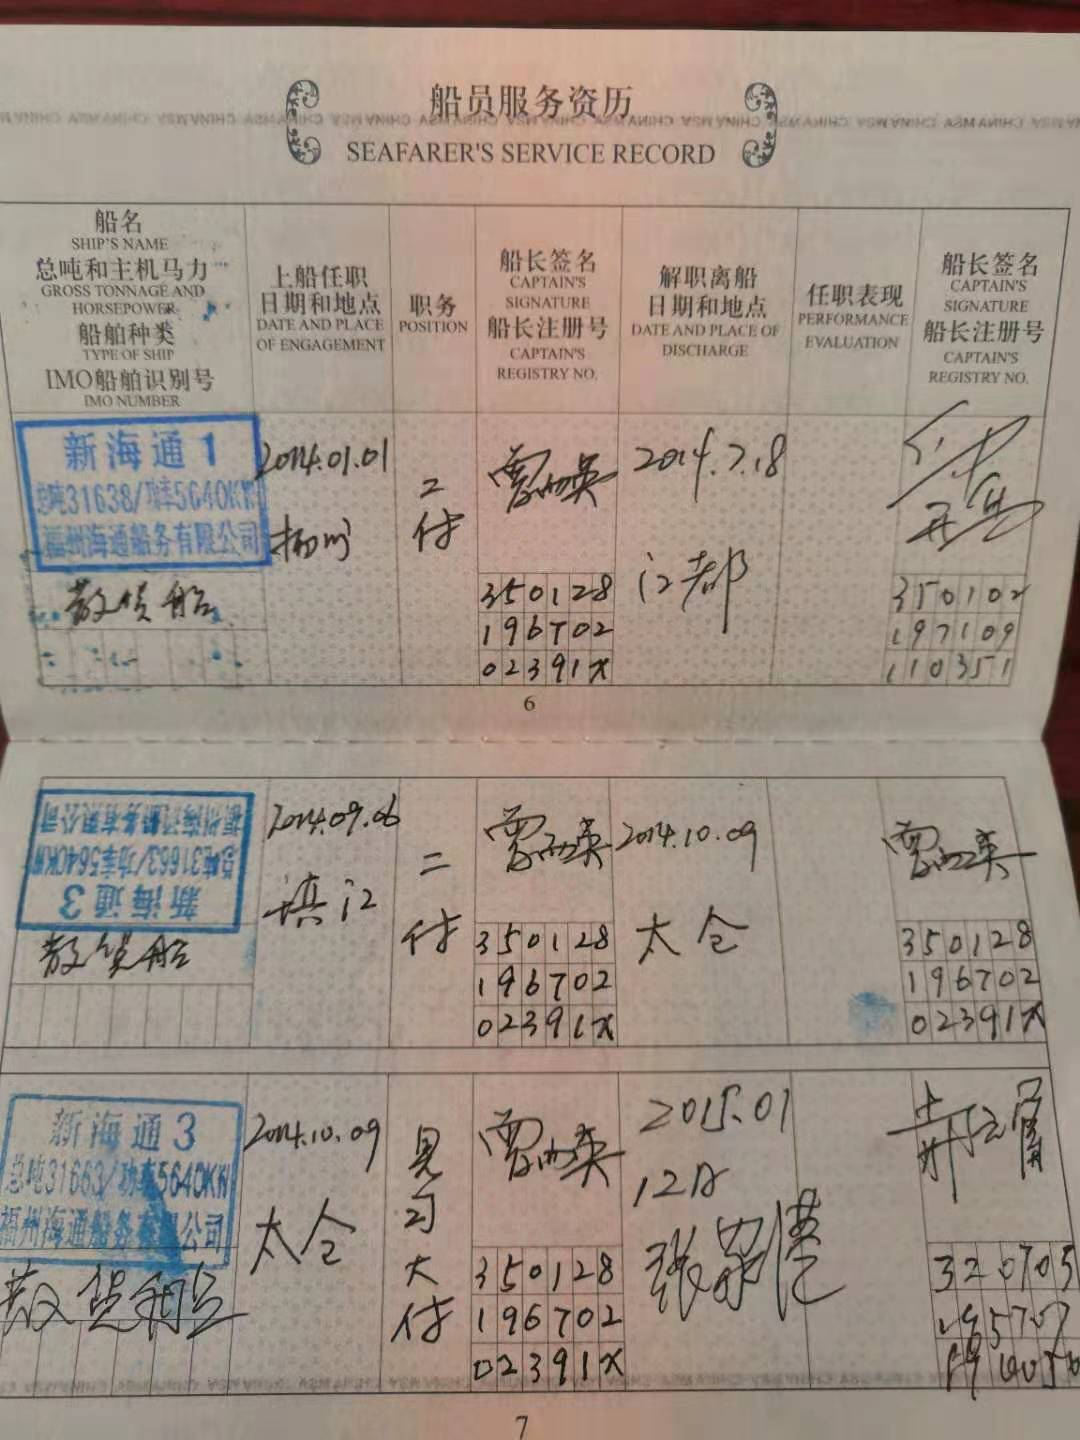 船员服务资历
SEAFARER'S SERVICE RECORD
船名
SHIP'S NAME
总吨和主机马力
GROSS TONNAGE AND
HORSEPOWER
船舶种类
TYPE OF SHIP
IMO船舶识别号
IMO NUMBER
上船任职
日期和地点
DATE AND PLACE
OF ENGAGEMENT
职务
POSITION
船长签名
CAPTAIN'S
SIGNATURE
船长注册号
CAPTAIN'S
REGISTRY NO.
解职离船
日期和地点
DATE AND PLACE OF
DISCHARGE
任职表现
PERFORMANCE
EVALUATION
船长签名
CAPTAIN'S
SIGNATURE
船长注册号
CAPTAIN'S
REGISTRY NO.
新海通1
总吨31638/功率5640KW
福州海通船务有限公司
散货船
2014.01.01
扬州
二
付
350128
196702
02391X
2014.7.18
江都
350102
197109
110351
6
新海通3
总吨31663/功率5640KW
福州海通船务有限公司
散货船
2014.09.06
镇江
二
付
350128
196702
02391X
2014.10.09
太仓
350128
196702
02391X
新海通3
总吨31663/功率5640KW
福州海通船务有限公司
散货船
2014.10.09
太仓
见
习
大
付
350128
196702
02391X
2015.01
12日
张家港
320705
7